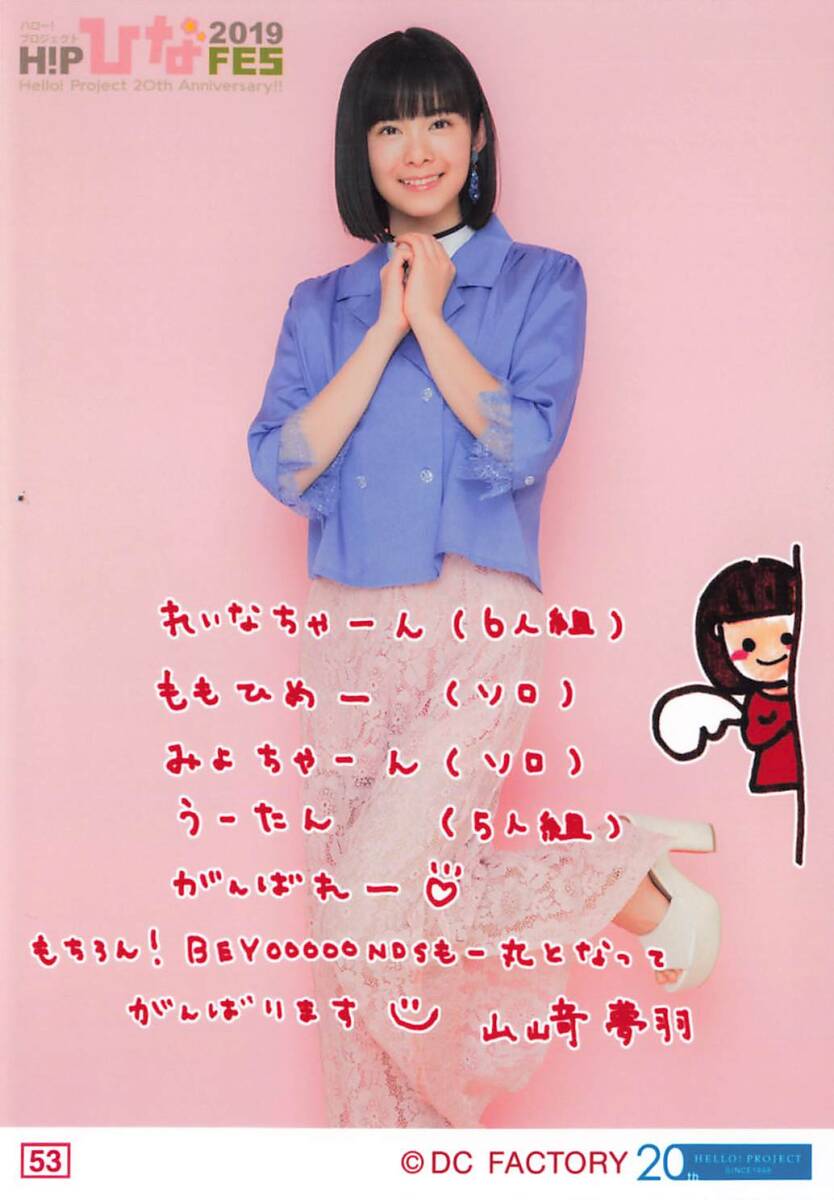 ハロー!
プロジェクト
H!PひなFES 2019
Hello! Project 20th Anniversary!!
れいなちゃーん (6人組)
ももひめー (ソロ)
みよちゃーん (ソロ)
うーたん (5人組)
がんばれー♡
もちろん! BEYOOOOONDSも一丸となって
がんばります
山﨑夢羽
53
©DC FACTORY
20th
HELLO! PROJECT
SINCE1998